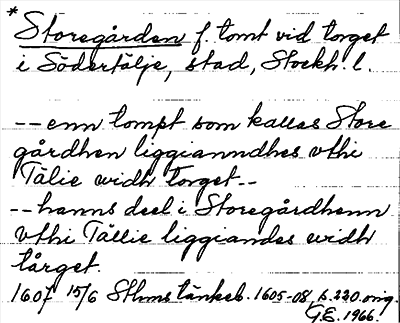 * Storegården f. tomt vid torget
i Södertälje, stad, Stockh. l.
-- enn tompt som kallas Store
gårdhen liggianndhes vthi
Tälie widh torget --
-- hanns deel i Storegårdhenn
vthi Tällie liggiandes widh
tårget.
1607 15/6 Sthms tänkeb. 1605-08, s. 220. orig.
G.E. 1966.